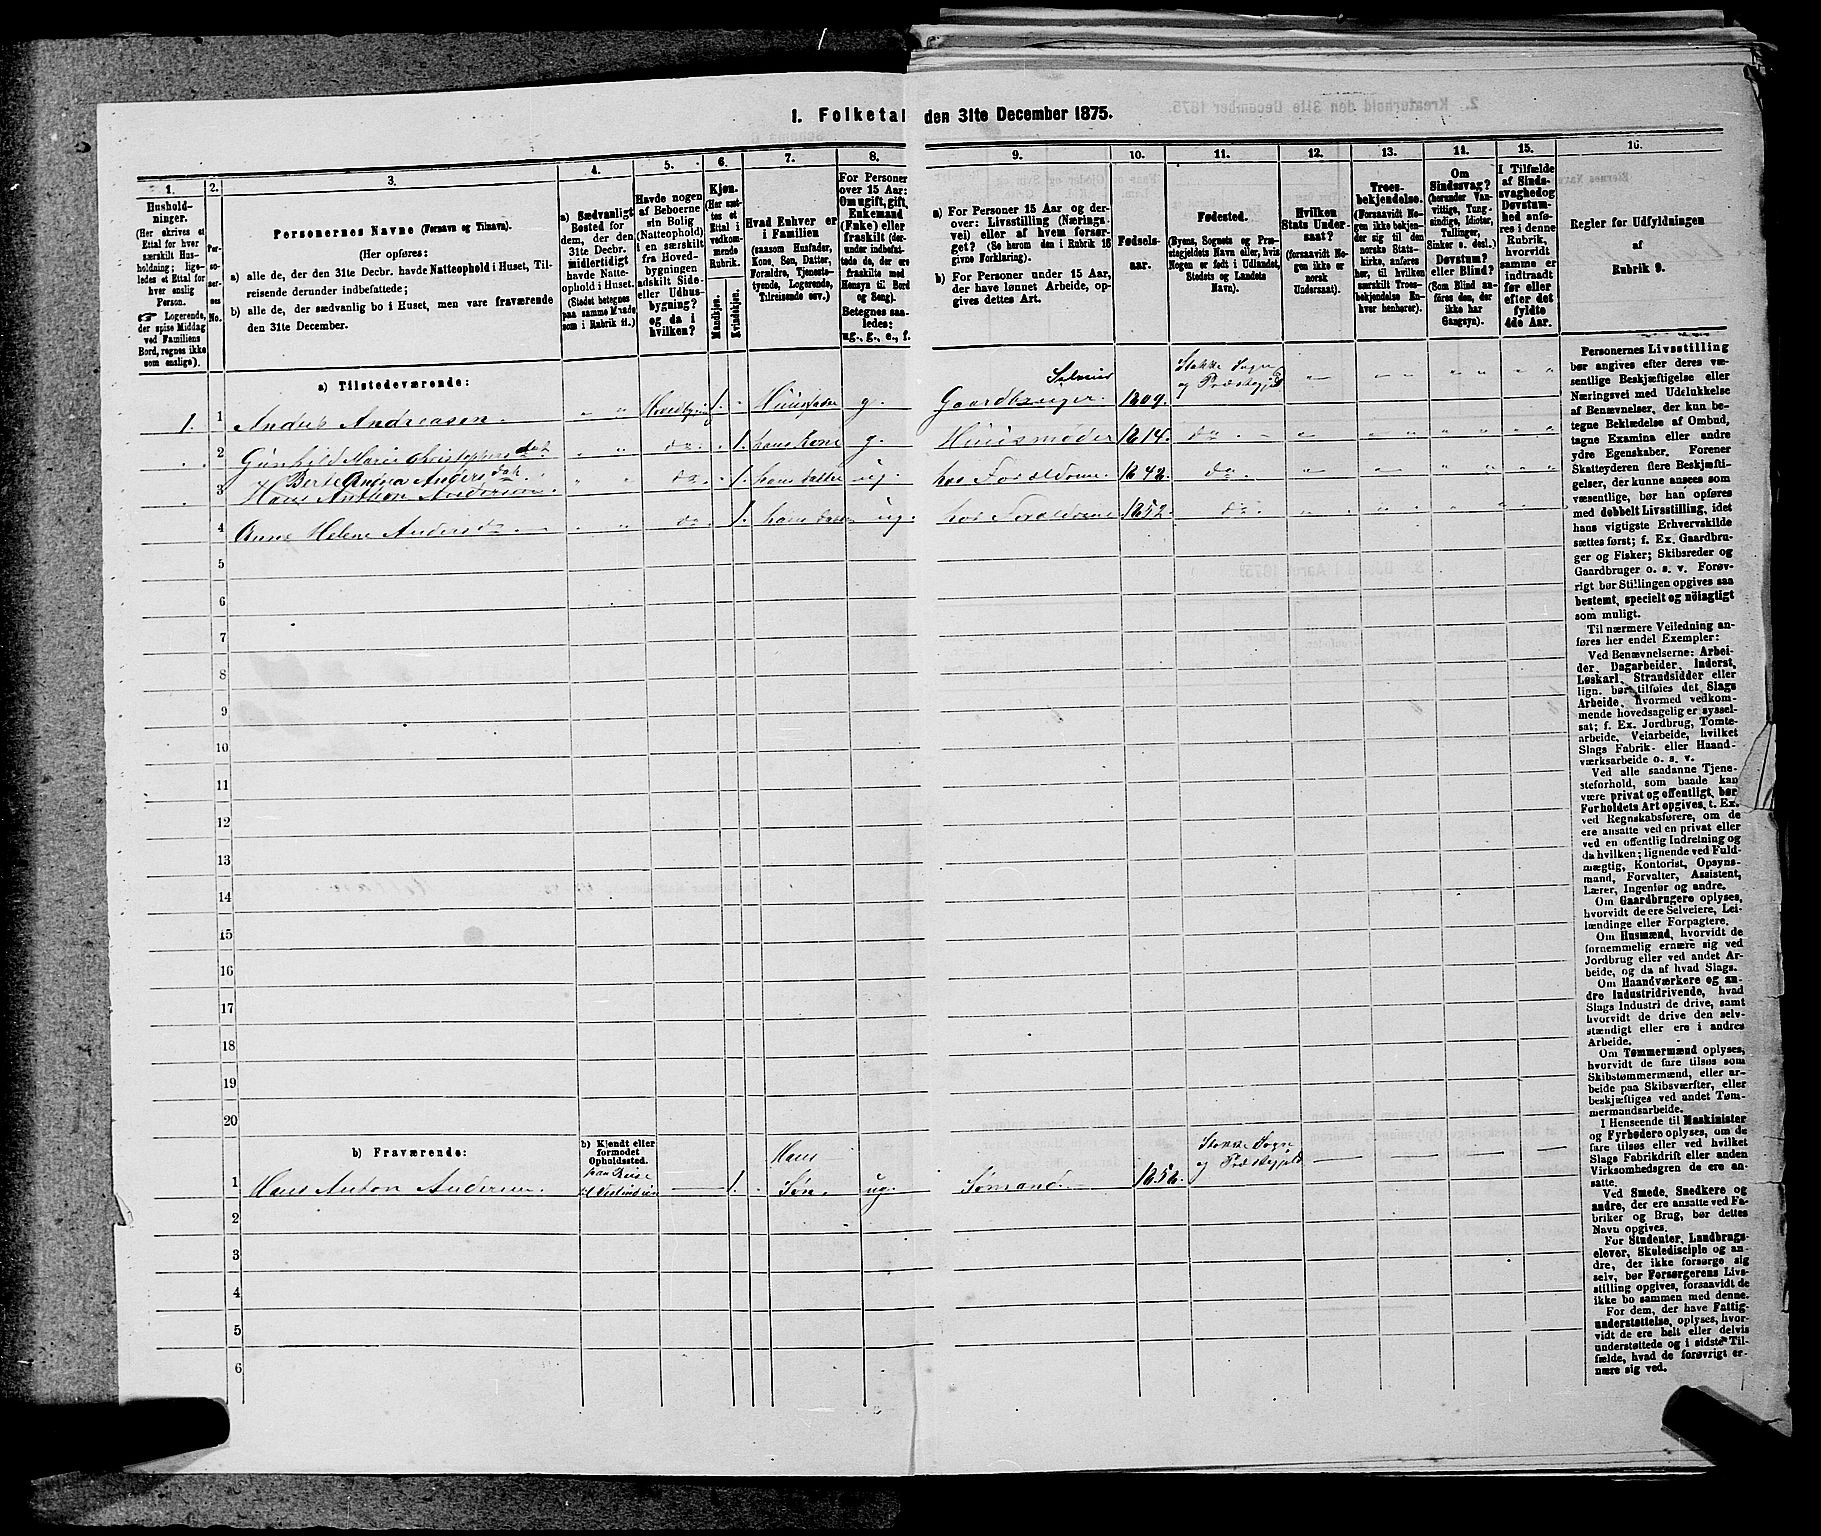 1. Folketal den 31te December 1875.
1. 2. 3. 4. 5. 6. 7. 8. 9. 10. 11. 12. 13. 14. 15. 16.
Hushold-
ninger.
(Her skrives et
Ettal for hver
særskilt Hus-
holdning; lige-
ledes et Ettal for
hver enslig
Person.
☞ Logerende,
der spise Middag
ved Familiens
Bord, regnes ikke
som enslige).
Per-
so-
ner-
nes
No.
Personernes Navne (Fornavn og Tilnavn).
(Her opføres:
a) alle de, der den 31te Decbr. havde Natteophold i Huset, Til-
reisende derunder indbefattede;
b) alle de, der sædvanlig bo i Huset, men vare fraværende
den 31te December.
a) Sædvanligt
Bosted for
dem, der den
31te Decbr.
midlertidigt
havde Natte-
ophold i Huset.
(Stedet betegnes
paa samme Maade
som i Rubrik 11.)
Havde nogen
af Beboerne
sin Bolig
(Natteophold)
i en særskilt
fra Hoved-
bygningen
adskilt Side-
eller Udhus-
bygning?
og da i
hvilken?
Kjøn.
(Her sæt-
tes et
Ettal i
vedkom-
mende
Rubrik.
Mandkjøn.
Kvindekjøn.
Hvad Enhver er
i Familien
(saasom Husfader,
Kone, Søn, Datter,
Forældre, Tjeneste-
tyende, Logerende,
Tilreisende osv.)
For Personer
over 15 Aar:
Om ugift, gift,
Enkemand
(Enke) eller
fraskilt (der-
under indbefat-
tede de, der ere
fraskilte med
Hensyn til Bord
og Seng).
Betegnes saa-
ledes:
ug., g., e., f.
a) For Personer 15 Aar og der-
over: Livsstilling (Nærings-
vei) eller af hvem forsør-
get? (Se herom den i Rubrik 16
givne Forklaring).
b) For Personer under 15 Aar,
der have lønnet Arbeide, op-
gives dettes Art.
Fødsels-
aar.
Fødested.
(Byens, Sognets og Præ-
stegjeldets Navn eller, hvis
Nogen er født i Udlandet,
Stedets og Landets
Navn).
Hvilken
Stats Under-
saat?
(forsaavidt No-
gen ikke er
norsk
Undersaat).
Troes-
bekjendelse.
(Forsaavidt No-
gen ikke bekjen-
der sig til den
norske Stats-
kirke, anføres
her, til hvilken
særskilt Troes-
bekjendelse En-
hver henhører).
Om
Sindssvag?
(herunder Van-
vittige, Tung-
sindige, Idioter,
Tullinger,
Sinker o. desl.)
Døvstum?
eller Blind?
(Som Blind an-
føres den, der
ikke har
Gangsyn).
I Tilfælde
af Sinds-
svaghed og
Døvstum-
hed anfø-
res i denne
Rubrik,
hvorvidt
samme er
indtraadt
før eller
efter det
fyldte
4de Aar.
Regler for Udfyldningen
af
Rubrik 9.
a) Tilstedeværende:
1. 1 Anders Andreasen. " " Hovedbygni 1. " Huusfader g. Selveier Gaardbruger. 1809. Stokke Sogn og Præstegjeld
2 Gunhild Marie Christophers dat " " do. 1. hans Kone g. Huusmoder 1814. do
3 Berte Andrea Anders dat " " do. 1. hans datter ug. hos Forældrene 1842. do.
Hans Anthon Andersen
4 Anne Helene Andersd. " " do. 1. hans datter ug. hos Forældrene 1852. do.
5
6
7
8
9
10
11
12
13
14
15
16
17
18
19
20
b) Fraværende:
b) Kjendt eller
formodet
Opholdssted.
1 Hans Anton Andersen. paa Reise til Vestindien 1. Hans Søn. ug. Sømand. 1856. Stokke Sogn og Præstegjeld
2
3
4
5
6
Personernes Livsstilling
bør angives efter deres væ-
sentlige Beskjæftigelse eller
Næringsvei med Udelukkelse
af Benævnelser, der kun be-
tegne Beklædelse af Ombud,
tagne Examina eller andre
ydre Egenskaber. Forener
Skatteyderen flere Beskjæfti-
gelser, der kunne ansees som
væsentlige, bør han opføres
med dobbelt Livsstilling, idet
hans vigtigste Erhvervskilde
sættes først; f. Ex. Gaardbru-
ger og Fisker; Skibsreder og
Gaardbruger o. s. v. Forøv-
rigt bør Stillingen opgives saa
bestemt, specielt og nøiagtigt
som muligt.
Til nærmere Veiledning an-
føres her endel Exempler:
Ved Benævnelserne: Arbei-
der, Dagarbeider, Inderst,
Løskarl, Strandsidder eller
lign. bør tilføies det Slags
Arbeide, hvormed vedkom-
mende hovedsagelig er syssel-
sat; f. Ex. Jordbrug, Tomte-
arbeide, Veiarbeide, hvilket
Slags Fabrik- eller Haand-
værksarbeide o. s. v.
Ved alle saadanne Tjene-
steforhold, som baade kan
være privat og offentligt, bør
Forholdets Art opgives, t. Ex.
ved Regnskabsførere, om de
ere ansatte ved en privat eller
ved en offentlig Indretning og
da hvilken; lignende ved Fuld-
mægtig, Kontorist, Opsyns-
mand, Forvalter, Assistent,
Lærer, Ingeniør og andre.
Om Gaardbrugere oplyses,
hvorvidt de ere Selveiere, Lei-
lændinge eller Forpagtere.
Om Husmænd, hvorvidt de
fornemmelig ernære sig ved
Jordbrug eller ved andet Ar-
beide, og da af hvad Slags.
Om Haandværkere og an-
dre Industridrivende, hvad
Slags Industri de drive, samt
hvorvidt de drive den selv-
stændigt eller ere i andres
Arbeide.
Om Tømmermænd oplyses,
hvorvidt de fare tilsøs som
Skibstømmermænd, eller ar-
beide paa Skibsværfter, eller
beskjæftiges ved andet Tøm-
mermandsarbeide.
I Henseende til Maskinister
og Fyrbødere oplyses, om de
fare tilsøs eller ved hvilket
Slags Fabrikdrift eller anden
Virksomhedsgren de ere an-
satte.
Ved Smede, Snedkere og
andre, der ere ansatte ved Fa-
briker og Brug, bør dettes
Navn opgives.
For Studenter, Landbrugs-
elever, Skoledisciple og an-
dre, der ikke forsørge sig
selv, bør Forsørgerens Livs-
stilling opgives, forsaavidt de
ikke bo sammen med denne.
For dem, der have Fattig-
understøttelse, oplyses, hvor-
vidt de ere helt eller delvis
understøttede og i sidste Til-
fælde, hvad de forøvrigt er-
nære sig ved.